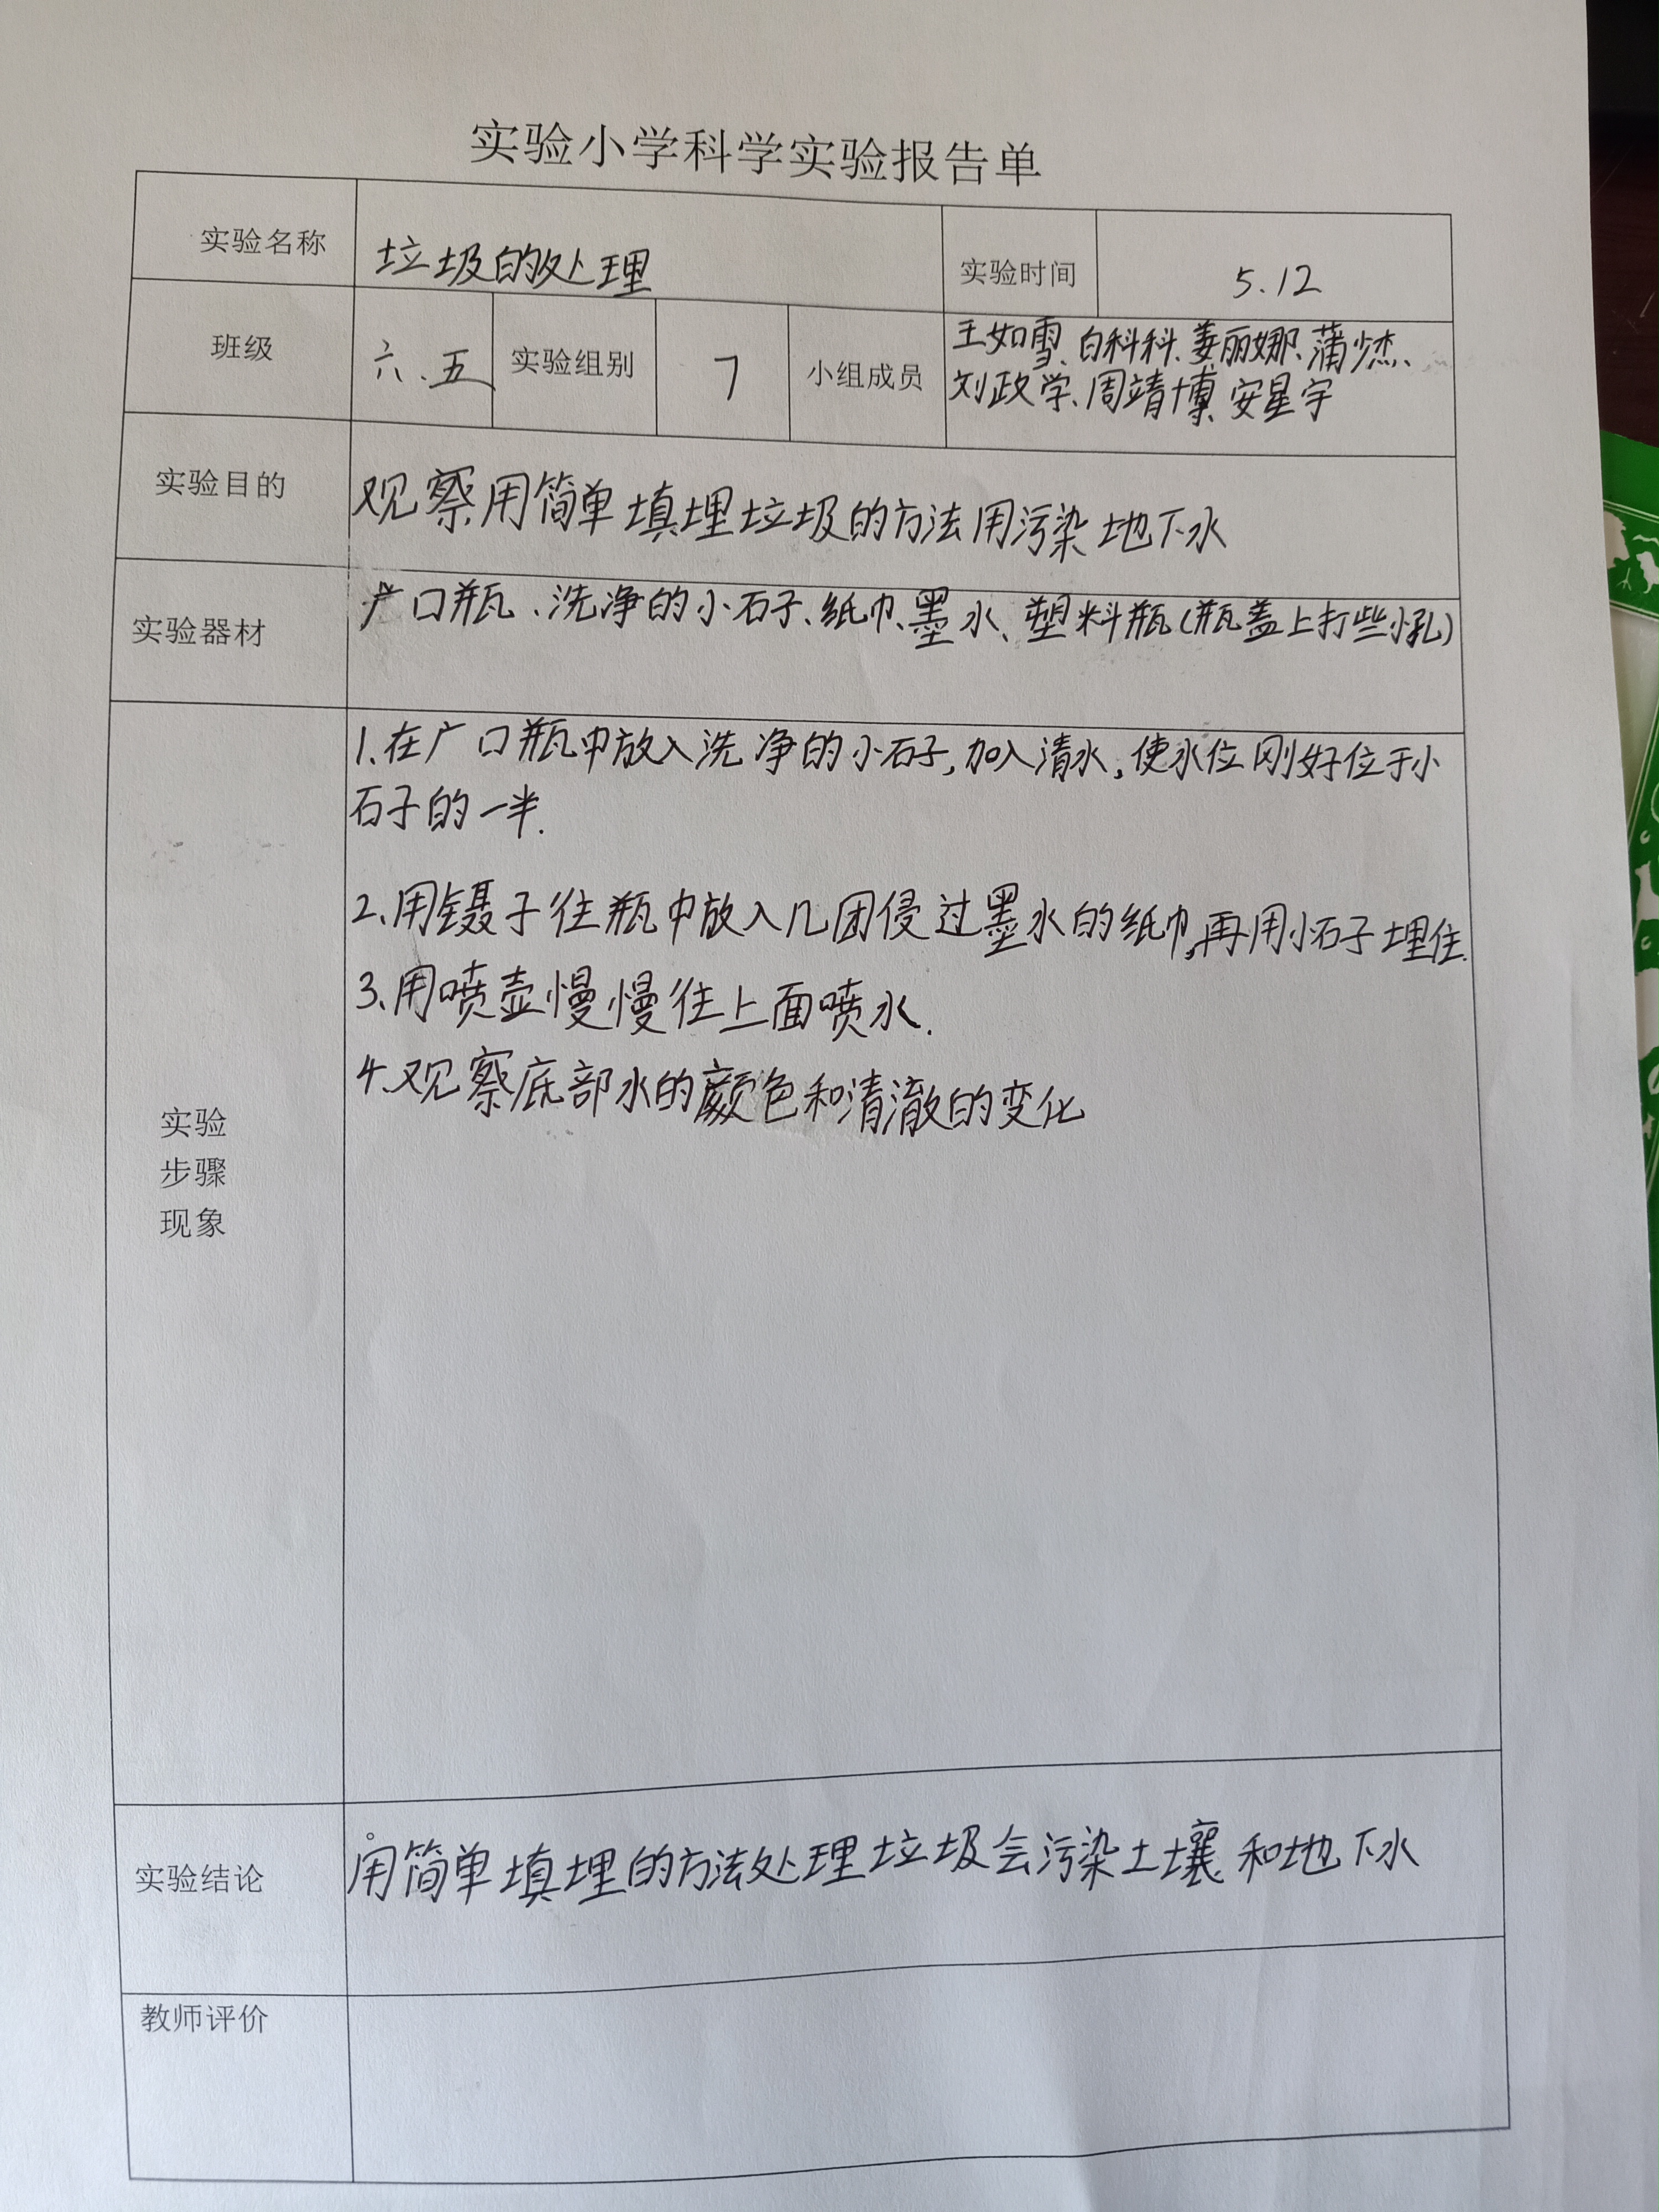 实验小学科学实验报告单
实验名称 垃圾的处理 实验时间 5.12
班级 六.五 实验组别 7 小组成员 王如雪、白科科、姜丽娜、蒲少杰、
刘政学、周靖博、安星宇
实验目的 观察用简单填埋垃圾的方法用污染地下水
实验器材 广口瓶、洗净的小石子、纸巾、墨水、塑料瓶(瓶盖上打些小孔)
1、在广口瓶中放入洗净的小石子,加入清水,使水位刚好位于小
石子的一半.
2、用镊子往瓶中放入几团侵过墨水的纸巾,再用小石子埋住.
3、用喷壶慢慢往上面喷水.
4、观察底部水的颜色和清澈的变化
实验
步骤
现象
实验结论 用简单填埋的方法处理垃圾会污染土壤和地下水
教师评价